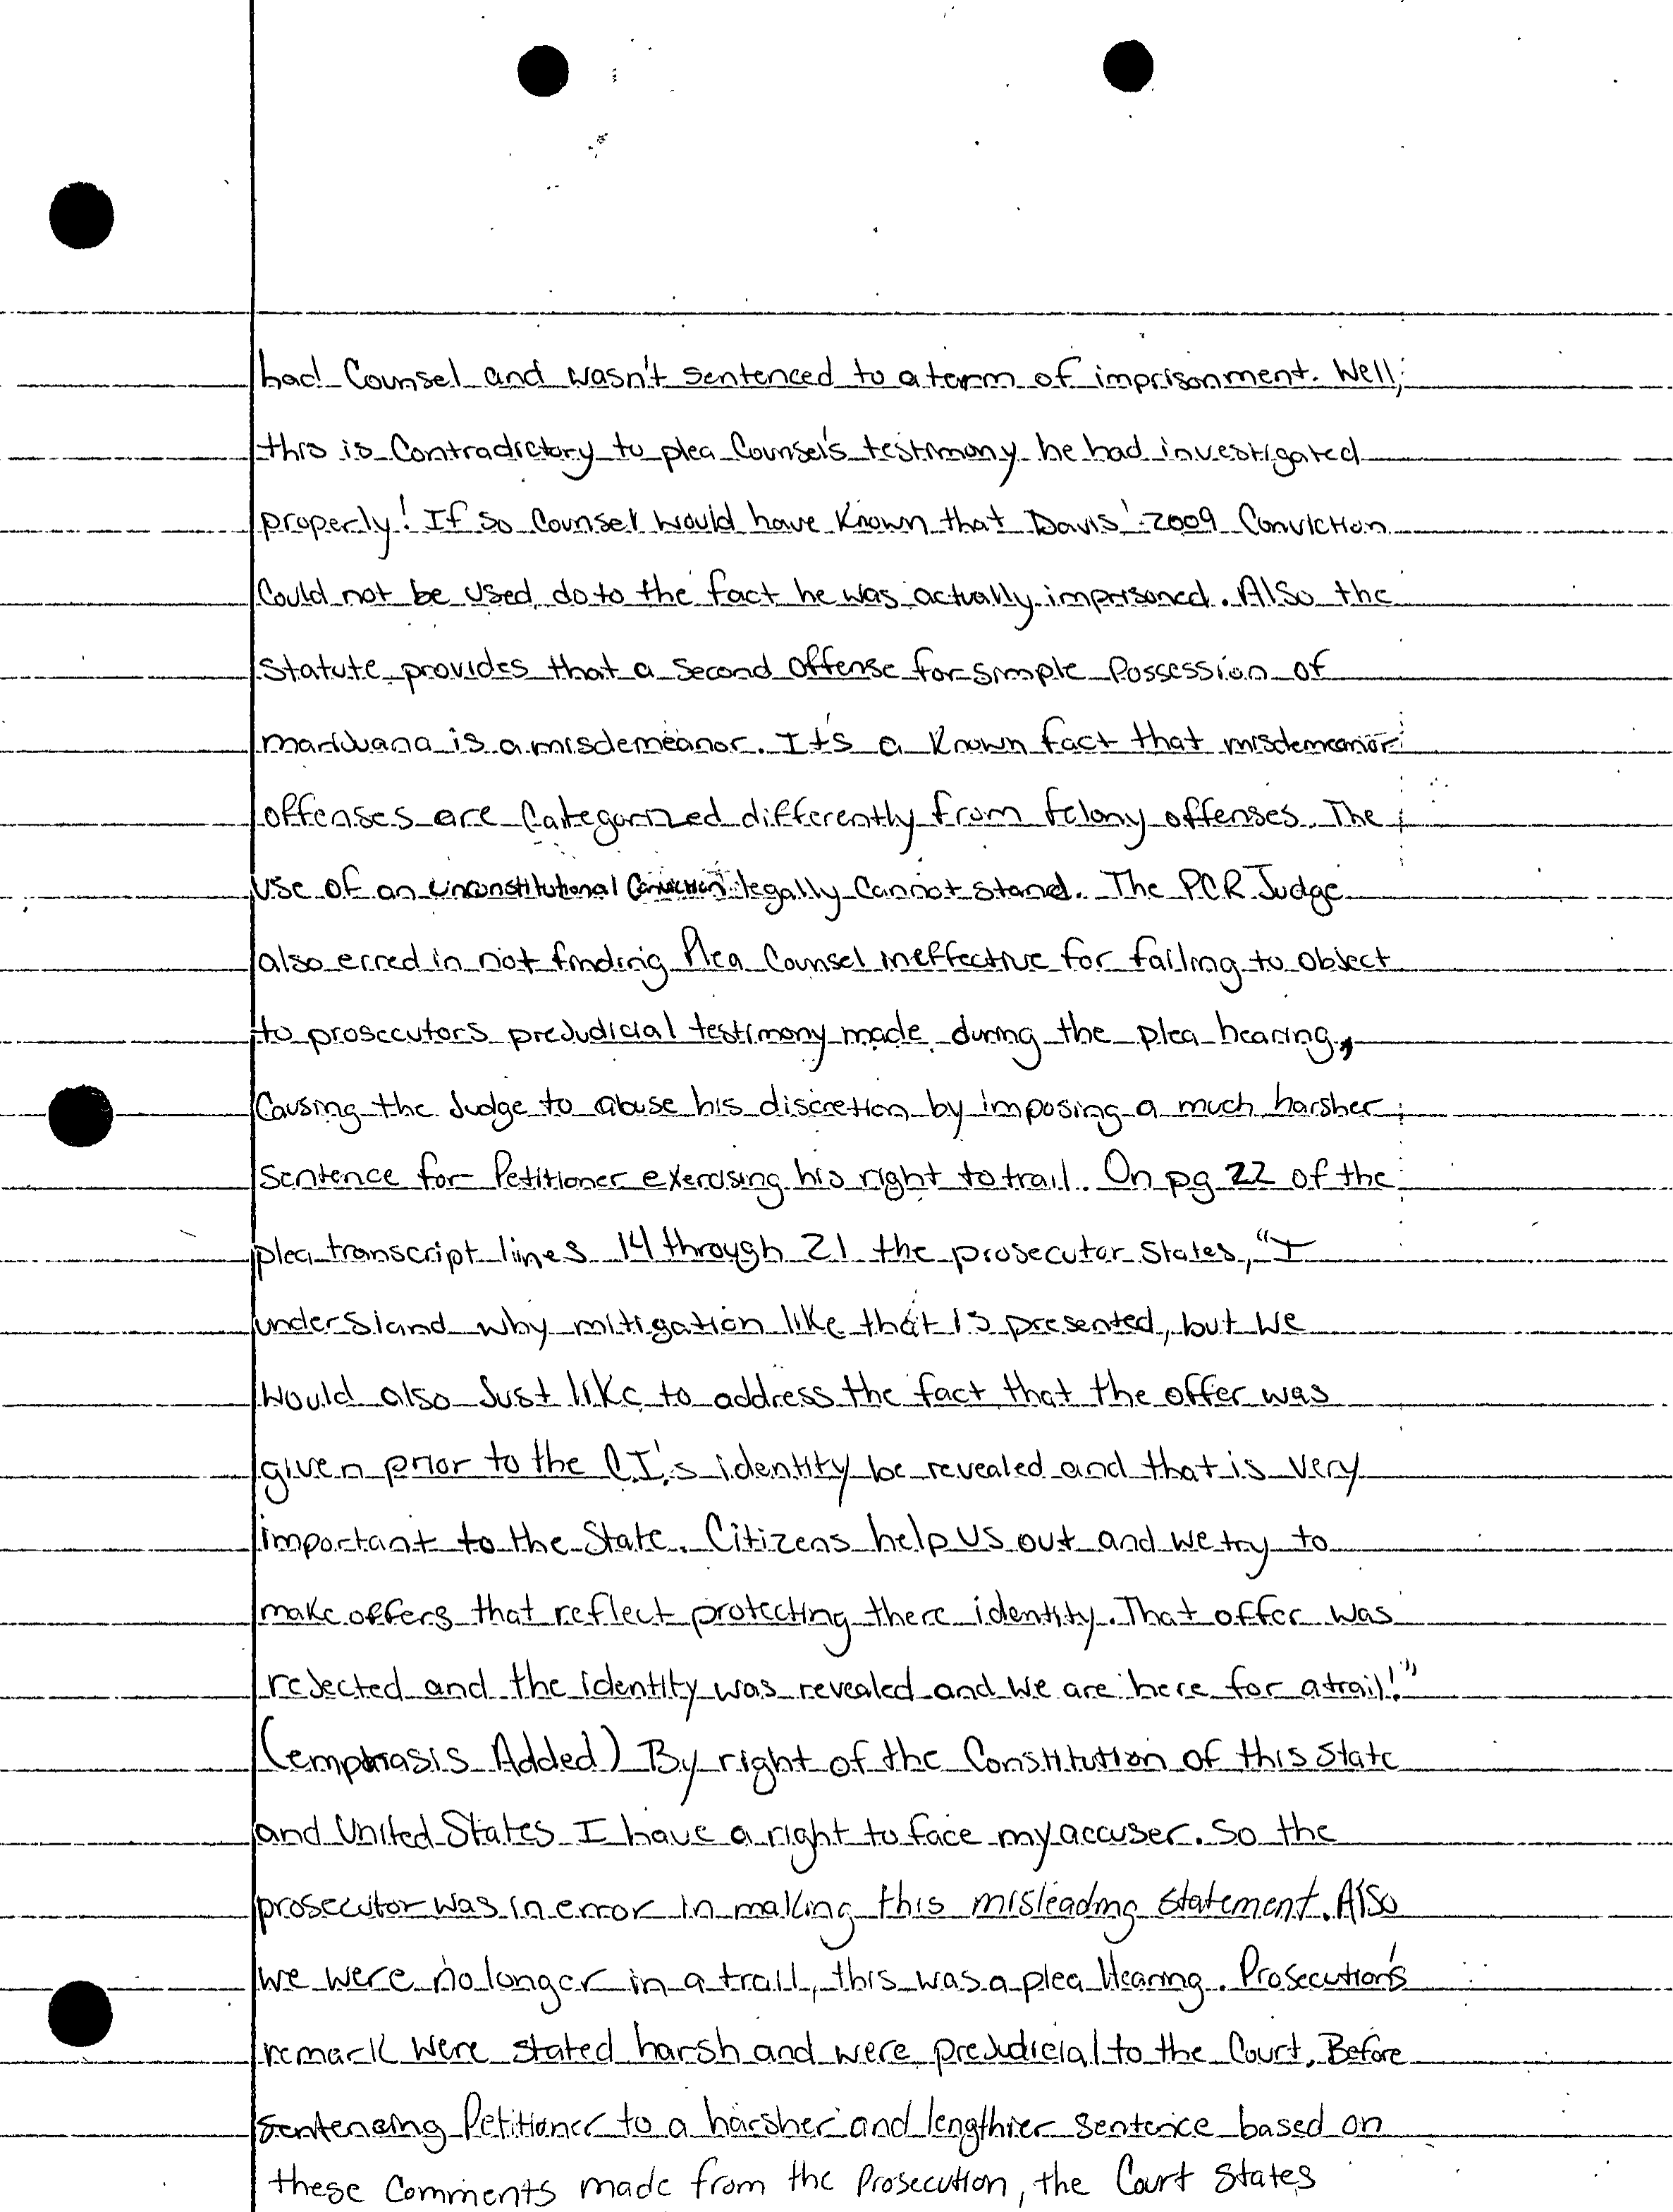 had Counsel and wasn't sentenced to a term of imprisonment. Well,
this is Contradictory to plea Counsel's testimony he had investigated
properly! If so Counsel would have Known that Davis' 2009 Conviction
Could not be used do to the fact he was actually imprisoned. Also the
Statute provides that a Second Offense for simple Possession of
marijuana is a misdemeanor. It's a Known fact that misdemeanor
offenses are Categorized differently from felony offenses. The
use of an unconstitutional Conviction legally Cannot stand. The PCR Judge
also erred in not finding Plea Counsel ineffective for failing to object
to prosecutors prejudicial testimony made during the plea hearing,
Causing the Judge to abuse his discretion by imposing a much harsher
Sentence for Petitioner exercising his right to trail. On pg 22 of the
plea transcript lines 14 through 21 the prosecutor States, "I
understand why mitigation like that is presented, but we
would also Just like to address the fact that the offer was
given prior to the C.I.'s identity be revealed and that is very
important to the State. Citizens help us out and we try to
make offers that reflect protecting there identity. That offer was
rejected and the identity was revealed and we are here for a trail!"
(emphasis Added) By right of the Constitution of this State
and United States I have a right to face my accuser. So the
prosecutor was in error in making this misleading statement. Also
we were no longer in a trail, this was a plea Hearing. Prosecution's
remark were stated harsh and were prejudicial to the Court. Before
sentencing Petitioner to a harsher and lengthier sentence based on
these Comments made from the Prosecution, the Court States